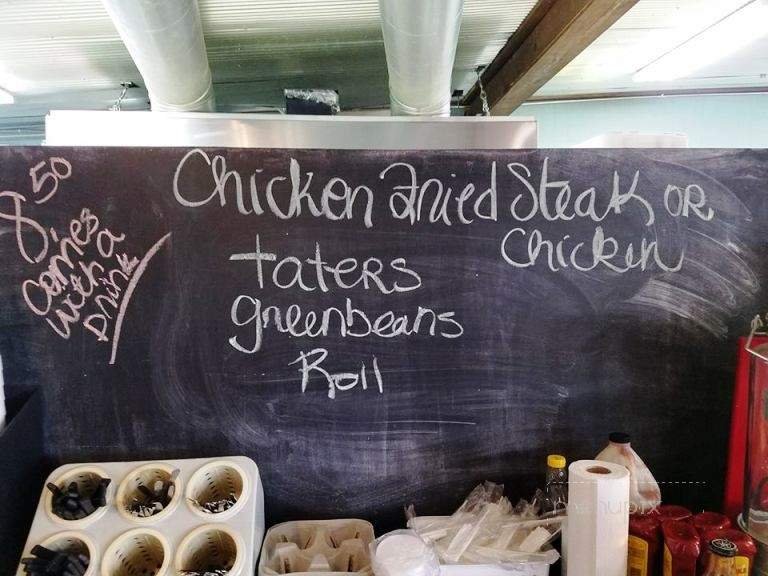 8.50
comes
with a
Drink
Chicken Fried Steak OR
Chicken
taters
greenbeans
Roll
menupix